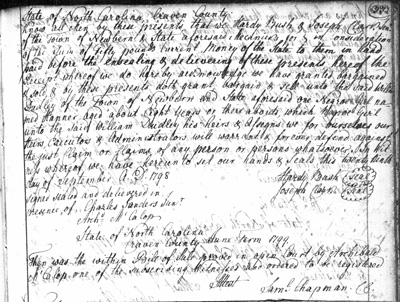 State of North Carolina, Craven County
Know all men by these presents that we Hardy Bush & Joseph
of the Town of Newbern & State aforesaid Mechanics for & in Consideration
of the Sum of Fifty pounds Current Money of the State to them in hand
paid before the ensealing & delivering of these presents the
Receipt whereof we do hereby acknowledge we have granted bargained
Sold & by these presents doth grant bargain & sell unto the said William
of the Town of Newbern and State aforesaid one Negroe Girl na-
med aged about Eight Years or there abouts which Negroe Girl
unto the said William his heirs & Assigns we for ourselves our
Heirs Executors & Administrators will warrant & forever defend against
the just Claim or Claims of any person or persons whatsoever In wit-
ness whereof we have hereunto set our hands & Seals this
Day of September A.D. 1798
Hardy Bush Seal
Signed Sealed and delivered in
Joseph Seal
presence of Charles Sanders Junr
Archd McCalop
State of North Carolina
Craven County June Term 1799
Then was the within Bill of Sale proved in open Court by Archibald
McCalop one of the Subscribing Witnesses and ordered to be registered
Attest
Saml Chapman